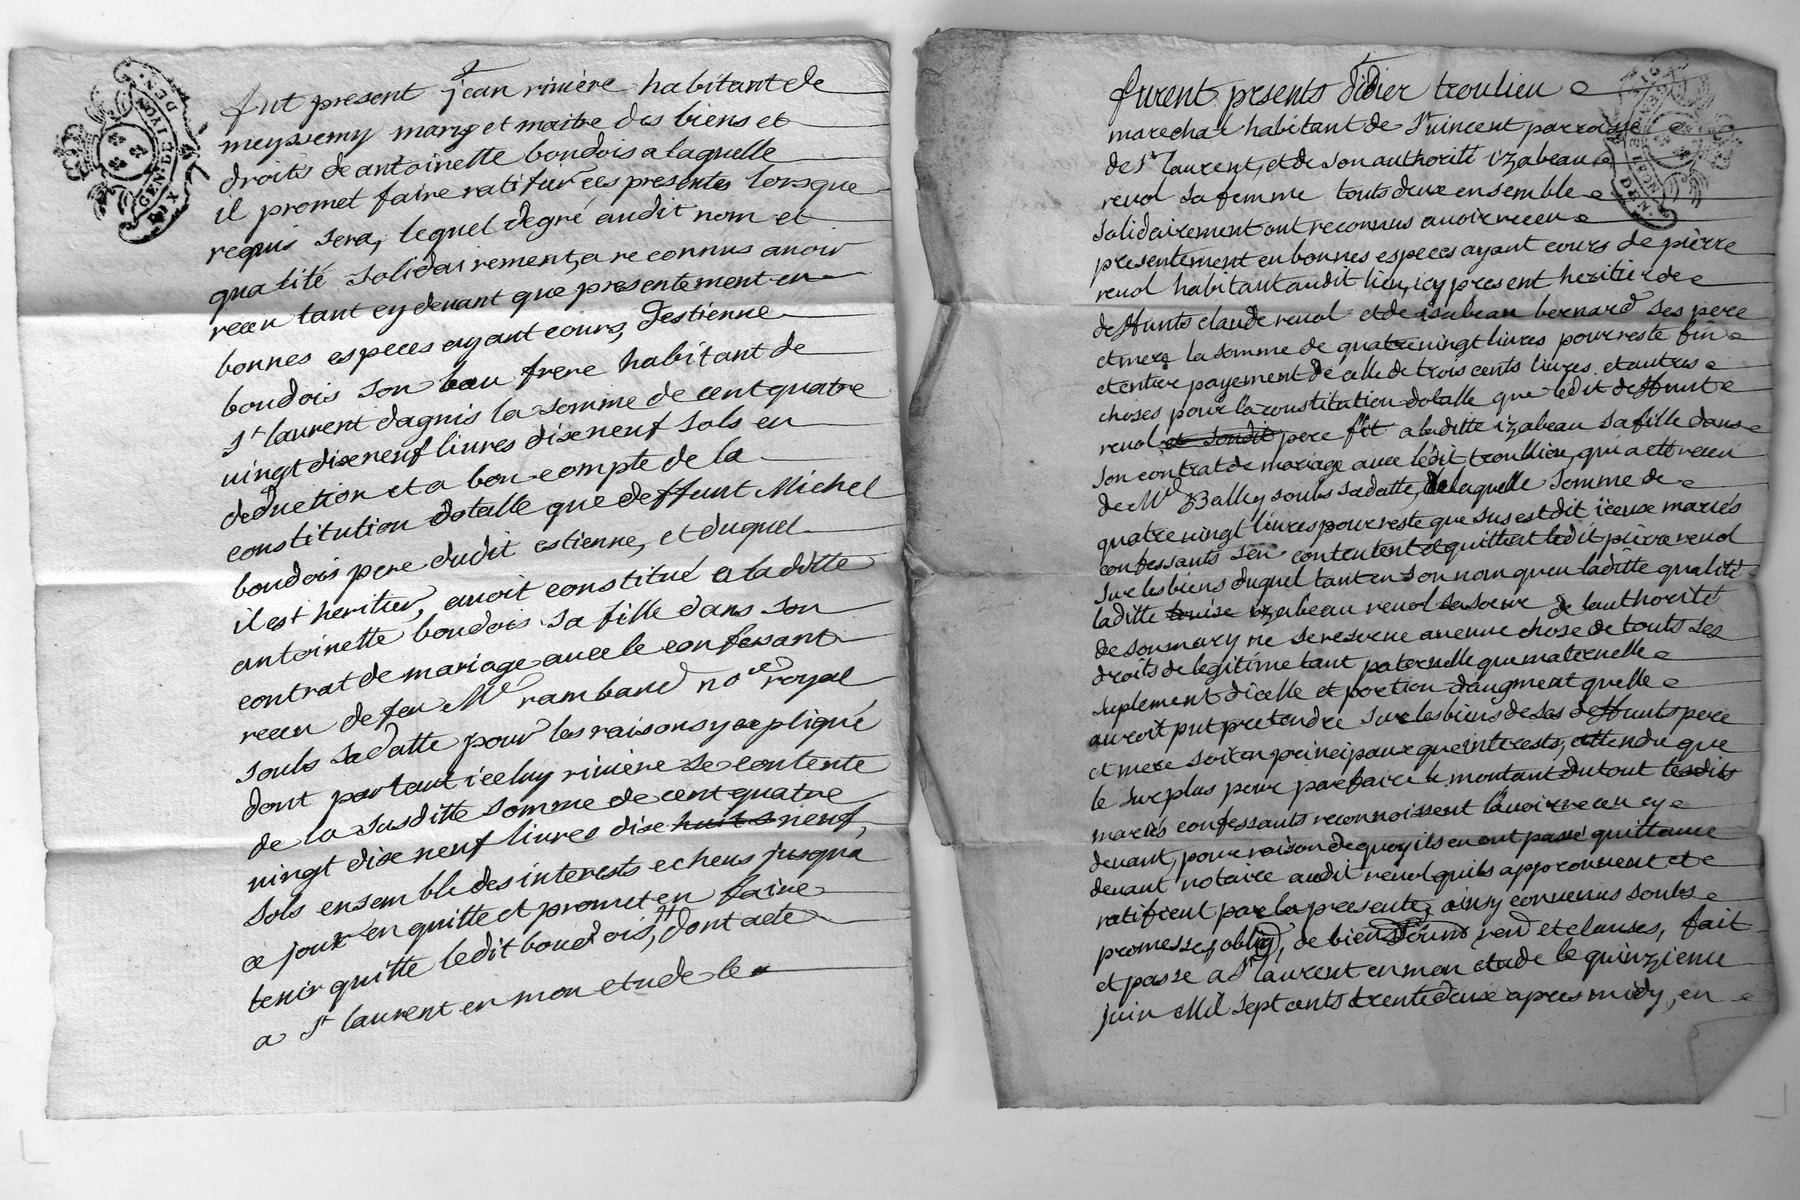 GEN. DE LYON
DEN.
fut present jean riviere habitant de
meyssemy mary et maitre des biens et
droits de antoinette boudois a laquelle
il promet faire ratifier ces presentes lorsque
requis sera, lequel de gré audit nom et
qualité solidairement, a reconnus avoir
receu tant cy devant que presentement en
bonnes especes ayant cours, d'estienne
boudois son beau frere habitant de
st laurent dagnis la somme de cent quatre
vingt dixeneuf livres dixeneuf sols en
deduction et a bon compte de la
constitution dotalle que deffunt Michel
boudois pere dudit estienne, et duquel
il est heritier, avoit constitué a laditte
antoinette boudois sa fille dans son
contrat de mariage avec le confessant
receu de feu Me rambaud nore royal
soubs sa datte pour les raisons y expliqué
dont partant iceluy riviere se contente
de la susditte somme de cent quatre
vingt dixe neuf livres dixe huit s neuf,
sols ensemble des interests echeus jusqua
ce jour en quitte et promet en faire
tenir quitte ledit boudois, dont acte
a st laurent en mon etude le
furent presents didier troulieu
marechal habitant de st vincent parroisse
de st laurent, et de son authorité izabeau
revol sa femme touts deux ensemble
solidairement ont reconnus avoir receu
presentement en bonnes especes ayant cours de pierre
revol habitant audit lieu, icy present heritier de
deffunts claude revol et de isabeau bernard ses pere
et mere la somme de quatre vingt livres pour reste fin
et entier payement de celle de trois cents livres et autres
choses pour la constitution dotalle que ledit deffunt
revol et sondit pere fit a laditte izabeau sa fille dans
son contrat de mariage avec ledit troullieu, qui a etté receu
de Me Balley soubs sa datte, de laquelle somme de
quatre vingt livres pour reste que sus est dit iceux mariés
confessants s'en contentent et quittent ledit pierre revol
sur les biens duquel tant en son nom qu'en laditte qualité
laditte louise izabeau revol sa soeur de l'authorité
de son mary ne se reserve aucune chose de touts ses
droits de legitime tant paternelle que maternelle
suplement dicelle et portion daugment quelle
auroit put pretendre sur les biens de ses deffunts pere
et mere soit en principaux que interests, attendu que
le surplus pour parfaire le montant du tout lesdits
mariés confessants reconnoissent lavoir receu cy
devant, pour raison de quoy ils en ont passé quittance
devant notaire audit revol quils approuvent et
ratifient par la presente, ainsy convenus soubs
promesse, oblig, de biens rend et clauses, fait
et passe a st laurent en mon etude le quinzieme
juin Mil sept cents trente deux apres midy, en